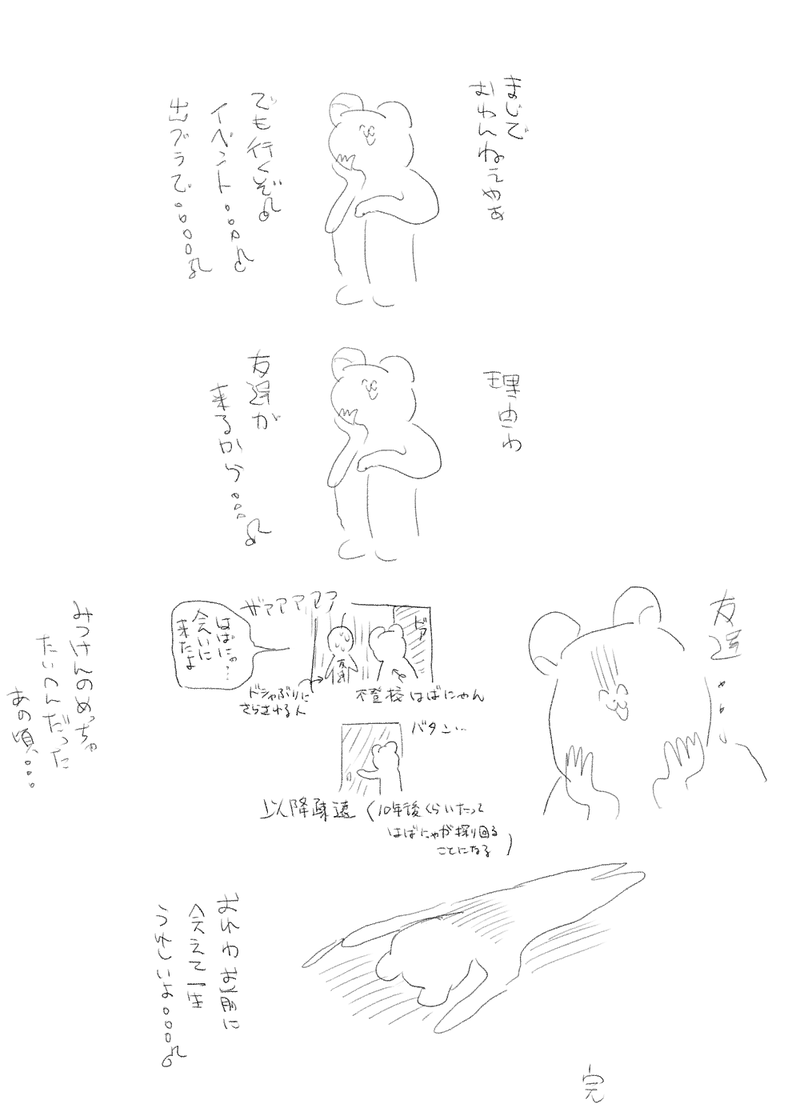 まじで
おわんねえやぁ
でも行くぞ
イベント。。。
出ブラで。。。。。
理由わ
友達が
来るから。。。。
友達
・・・
ザァアアアアア
はばに。…
会いに
来たよ
ドア
友達
ドシャぶりに
さらされる人
不登校はばにゃん
バタン…
以降疎遠(10年後くらいたって
はばにゃが探り回る
ことになる)
みつけんのめっちゃ
たいへんだった
あの頃、…
おれわお前に
会えて一生
うれしいよ。。。。
完